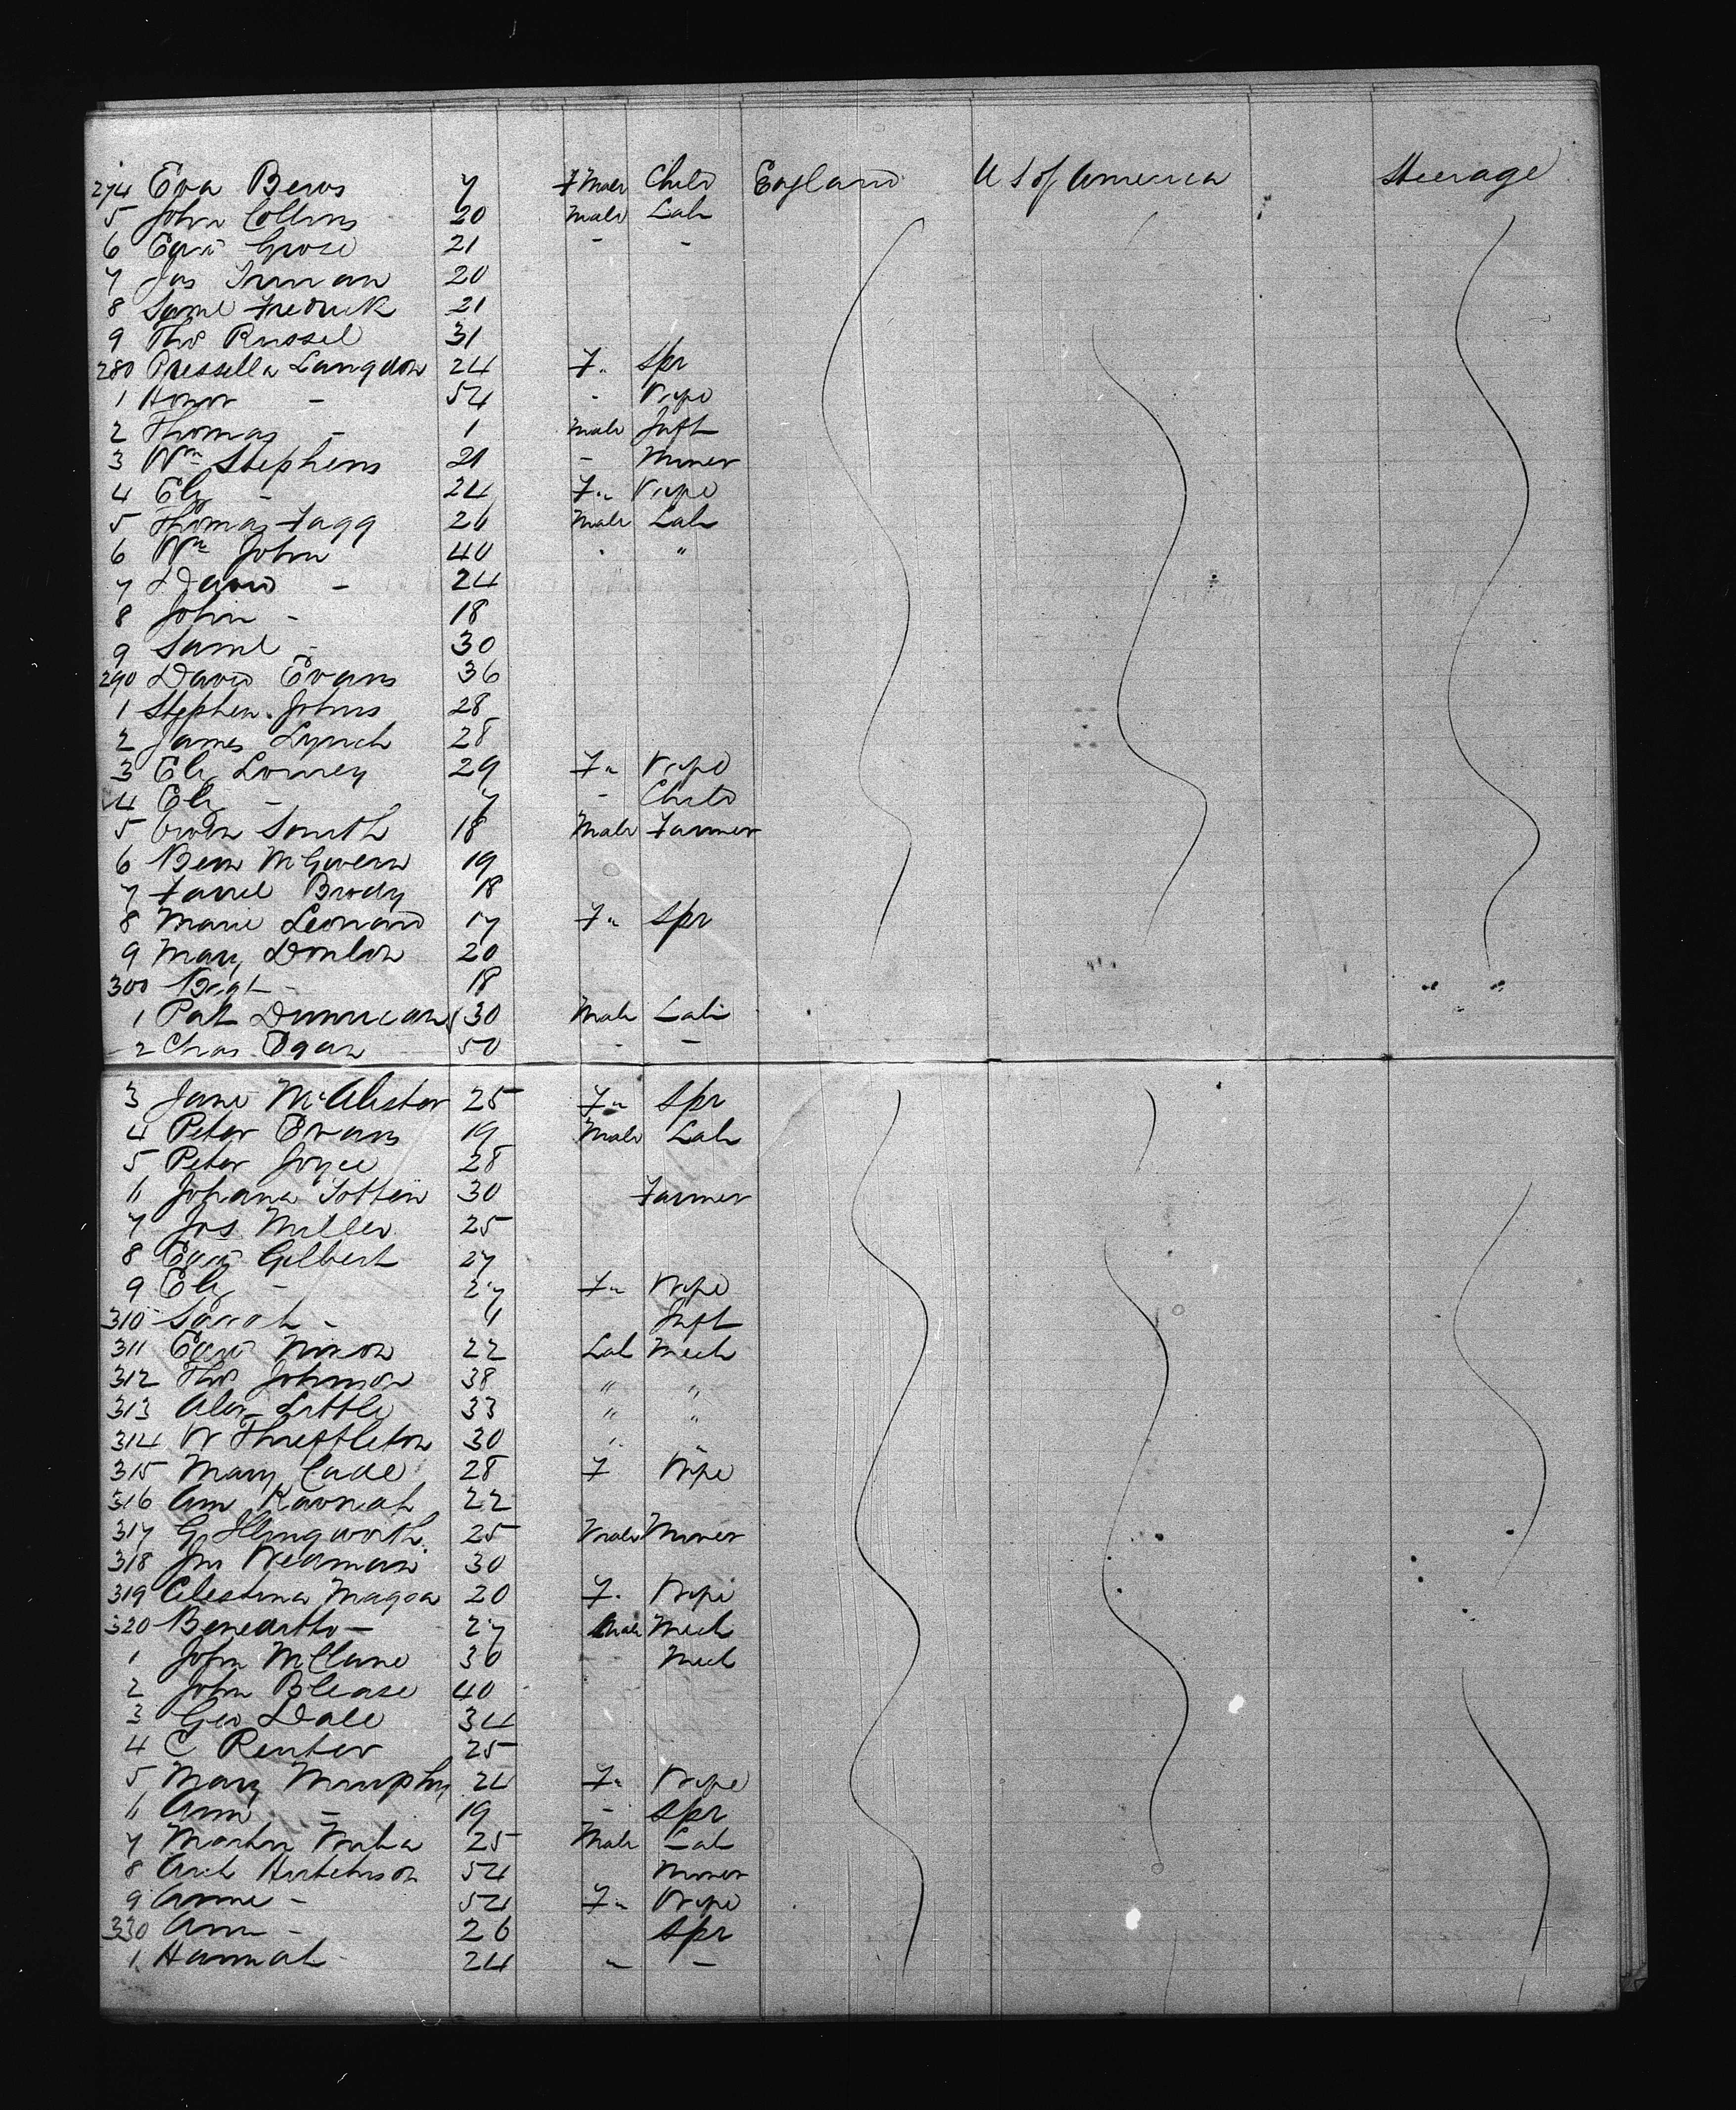 274 Eva Bews 7 F Male Child England U S of America Steerage
5 John Collins 20 Male Lab
6 Edwd Grose 21 - -
7 Jas Inman 20
8 Saml Fredrick 21
9 Thos Russel 31
280 Pressella Langdon 24 F" Spr
1 Honor - 54 - Wife
2 Thomas - 1 Male Inft
3 Wm Stephens 21 - Miner
4 Elz - 24 F" Wife
5 Thomas Fagg 26 Male Lab
6 Wm John 40 " "
7 David - 24
8 John - 18
9 Saml - 30
290 David Evans 36
1 Stephen Johns 28
2 James Lynch 28
3 Elz 29 F" Wife
4 Elz - 7 - Child
5 Owen Smith 18 Male Farmer
6 Bern McGovern 19
7 Farrel Brody 18
8 Marie Leonard 17 F" Spr
9 Mary Donlon 20
300 Bigt - 18
1 Pat 30 Male Lab
2 Chas Egan 50 - -
3 Jane McAlister 25 F" Spr
4 Peter Evans 19 Male Lab
5 Peter Joyce 28
6 Johana 30 Farmer
7 Jos Miller 25
8 Edwd Gilbert 27
9 Elz - 27 F" Wife
310 Sarah - Inft
311 Edwd Nixon 22 Lab Mech
312 Thos Johnson 38 " "
313 Alex Little 33 " "
314 W Threffleton 30 "
315 Mary Cade 28 F Wife
316 Ann Kavnah 22
317 G Illingworth 25 Male Miner
318 Jno Wedman 30
319 Celestina Magoa 20 F" Wife
320 Benedetto - 27 Male Mech
1 John McClane 36 - Mech
2 John Blease 40
3 Geo Dale 34
4 C Renter 25
5 Mary Murphy 24 F" Wife
6 Ann - 19 - Spr
7 Martin 25 Male Lab
8 Arch Hutchison 54 Miner
9 Anne - 54 F" Wife
330 Ann - 26 Spr
1 Hannah - 24 " -